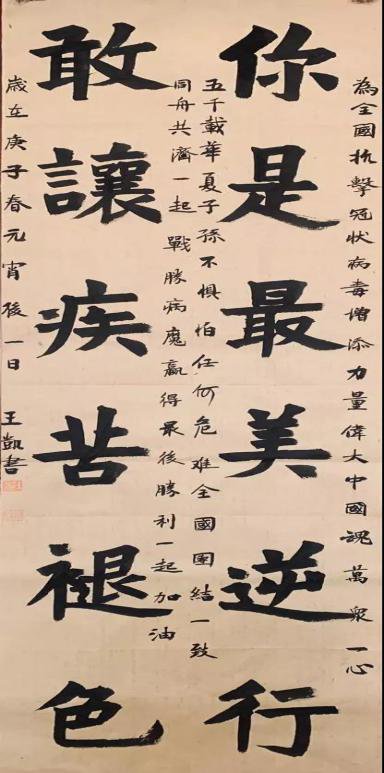 為全國抗擊冠狀病毒增添力量偉大中國魂萬衆一心
你是最美逆行
五千載華夏子孫不懼怕任何危難全國團結一致
同舟共濟一起戰勝病魔贏得最後勝利一起加油
敢讓疾苦褪色
歲在庚子春元宵後一日 王凱書